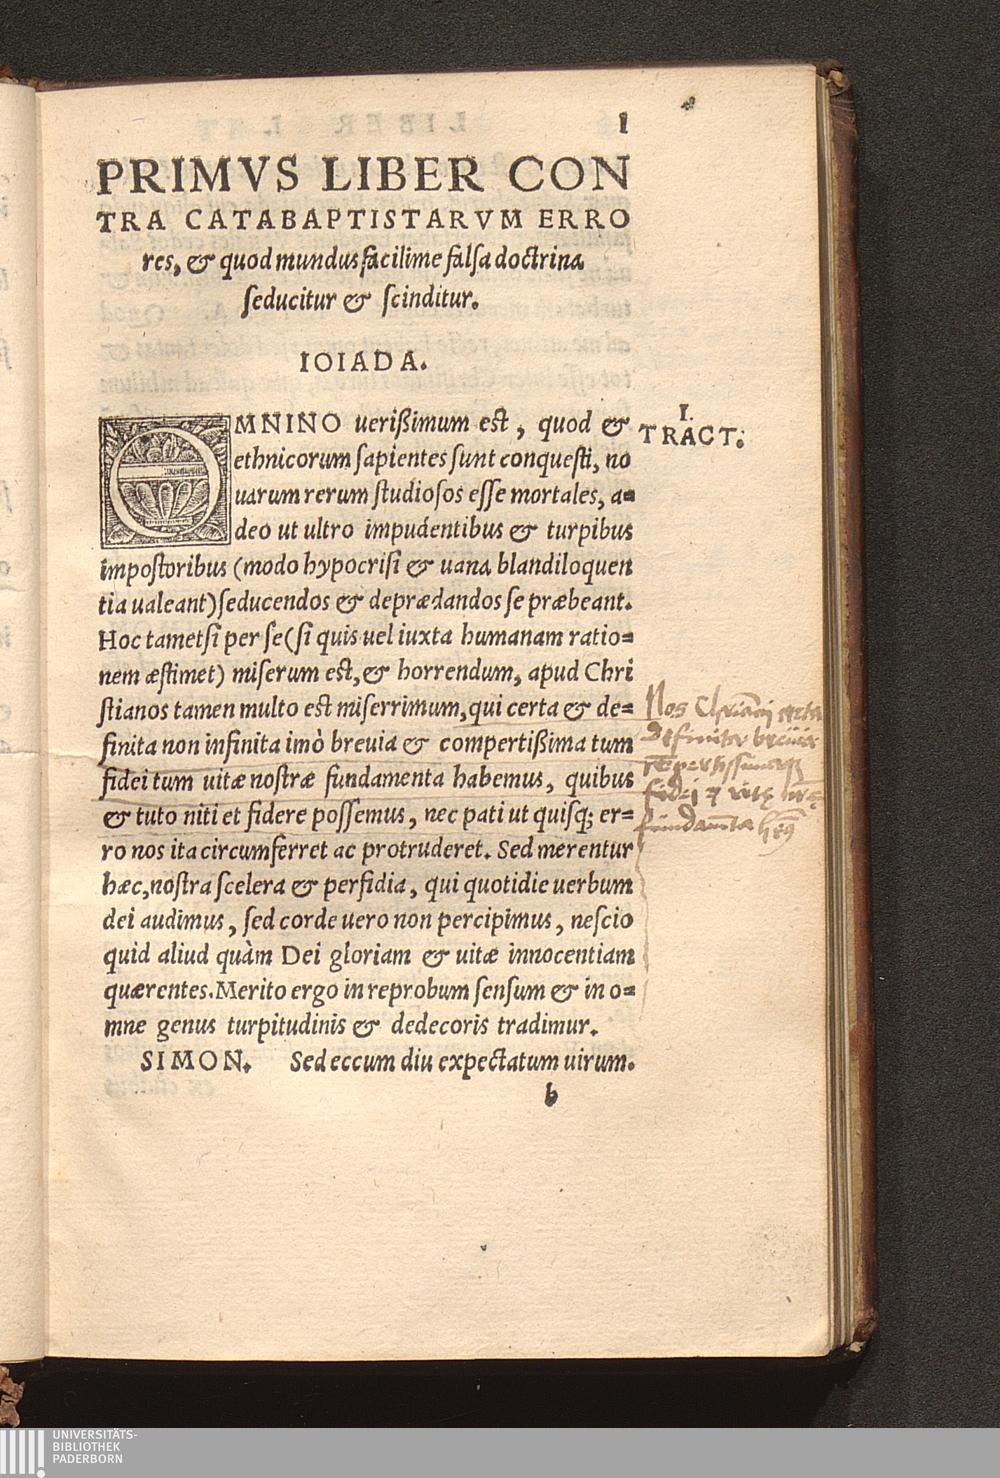 1
PRIMVS LIBER CON
TRA CATABAPTISTARVM ERRO
res, & quod mundus facilime falſa doctrina
ſeducitur & ſcinditur.
IOIADA.
I.
TRACT:
OMNINO ueriſsimum est, quod &
ethnicorum ſapientes ſunt conqueſti, no
uarum rerum ſtudioſos eſſe mortales, a=
deo ut ultro impudentibus & turpibus
impoſtoribus (modo hypocriſi & uana blandiloquen
tia ualeant) ſeducendos & deprædandos ſe præbeant.
Hoc tametſi per ſe (ſi quis uel iuxta humanam ratio=
nem æſtimet) miſerum est, & horrendum, apud Chri
ſtianos tamen multo est miſerrimum, qui certa & de=
finita non infinita imò breuia & compertiſsima tum
fidei tum uitæ noſtræ fundamenta habemus, quibus
& tuto niti et fidere poſſemus, nec pati ut quiſq; er=
ro nos ita circumferret ac protruderet. Sed merentur
hæc, noſtra ſcelera & perfidia, qui quotidie uerbum
dei audimus, ſed corde uero non percipimus, neſcio
quid aliud quàm Dei gloriam & uitæ innocentiam
quærentes. Merito ergo in reprobum ſenſum & in o=
mne genus turpitudinis & dedecoris tradimur.
SIMON. Sed eccum diu expectatum uirum.
b
Nos certa
fidei
UNIVERSITÄTS-
BIBLIOTHEK
PADERBORN